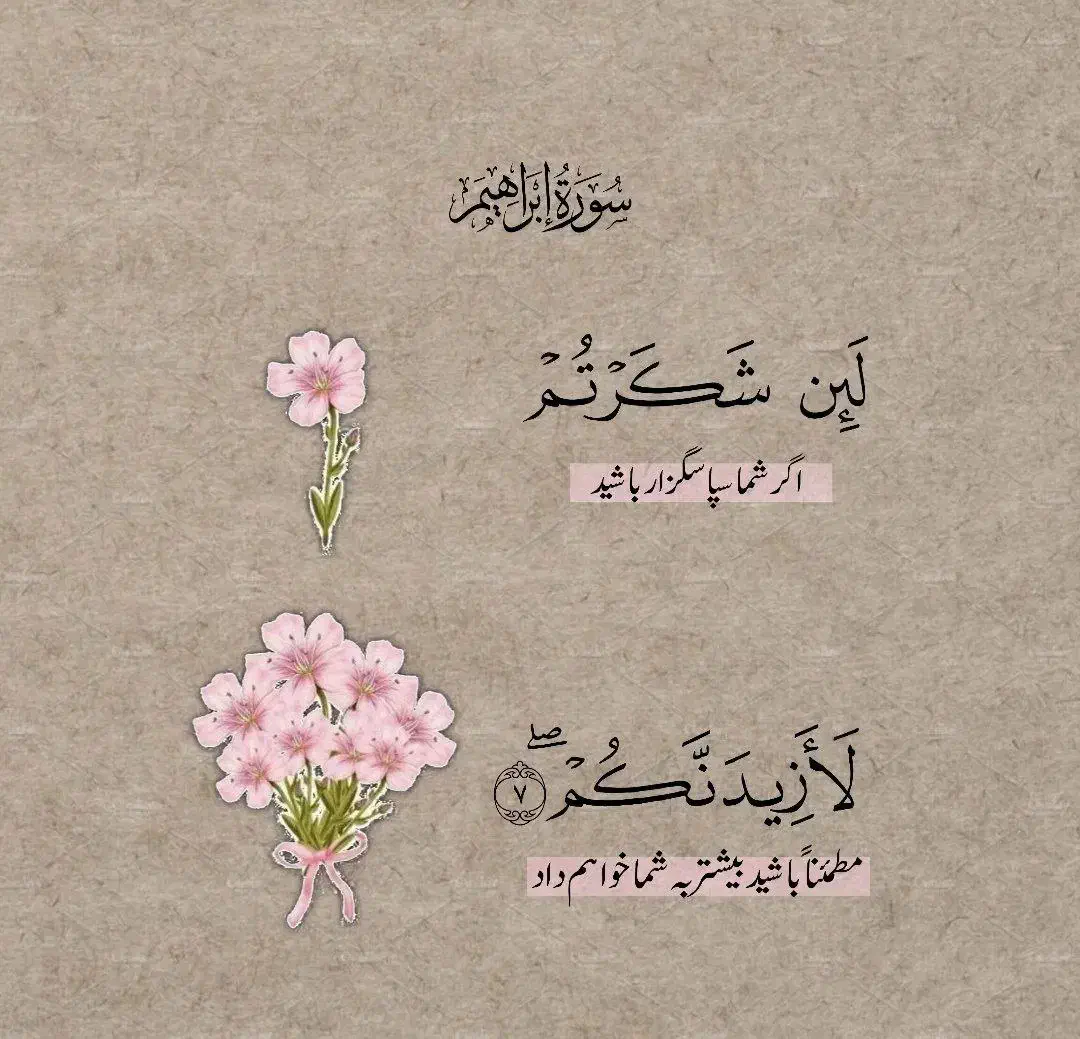 سُورَةُ إِبْرَاهِيمَ
لَئِن شَكَرۡتُمۡ
اگر شما سپاسگزار باشید
لَأَزِيدَنَّكُمۡۖ ٧
مطمئناً باشید بیشتر به شما خواهم داد